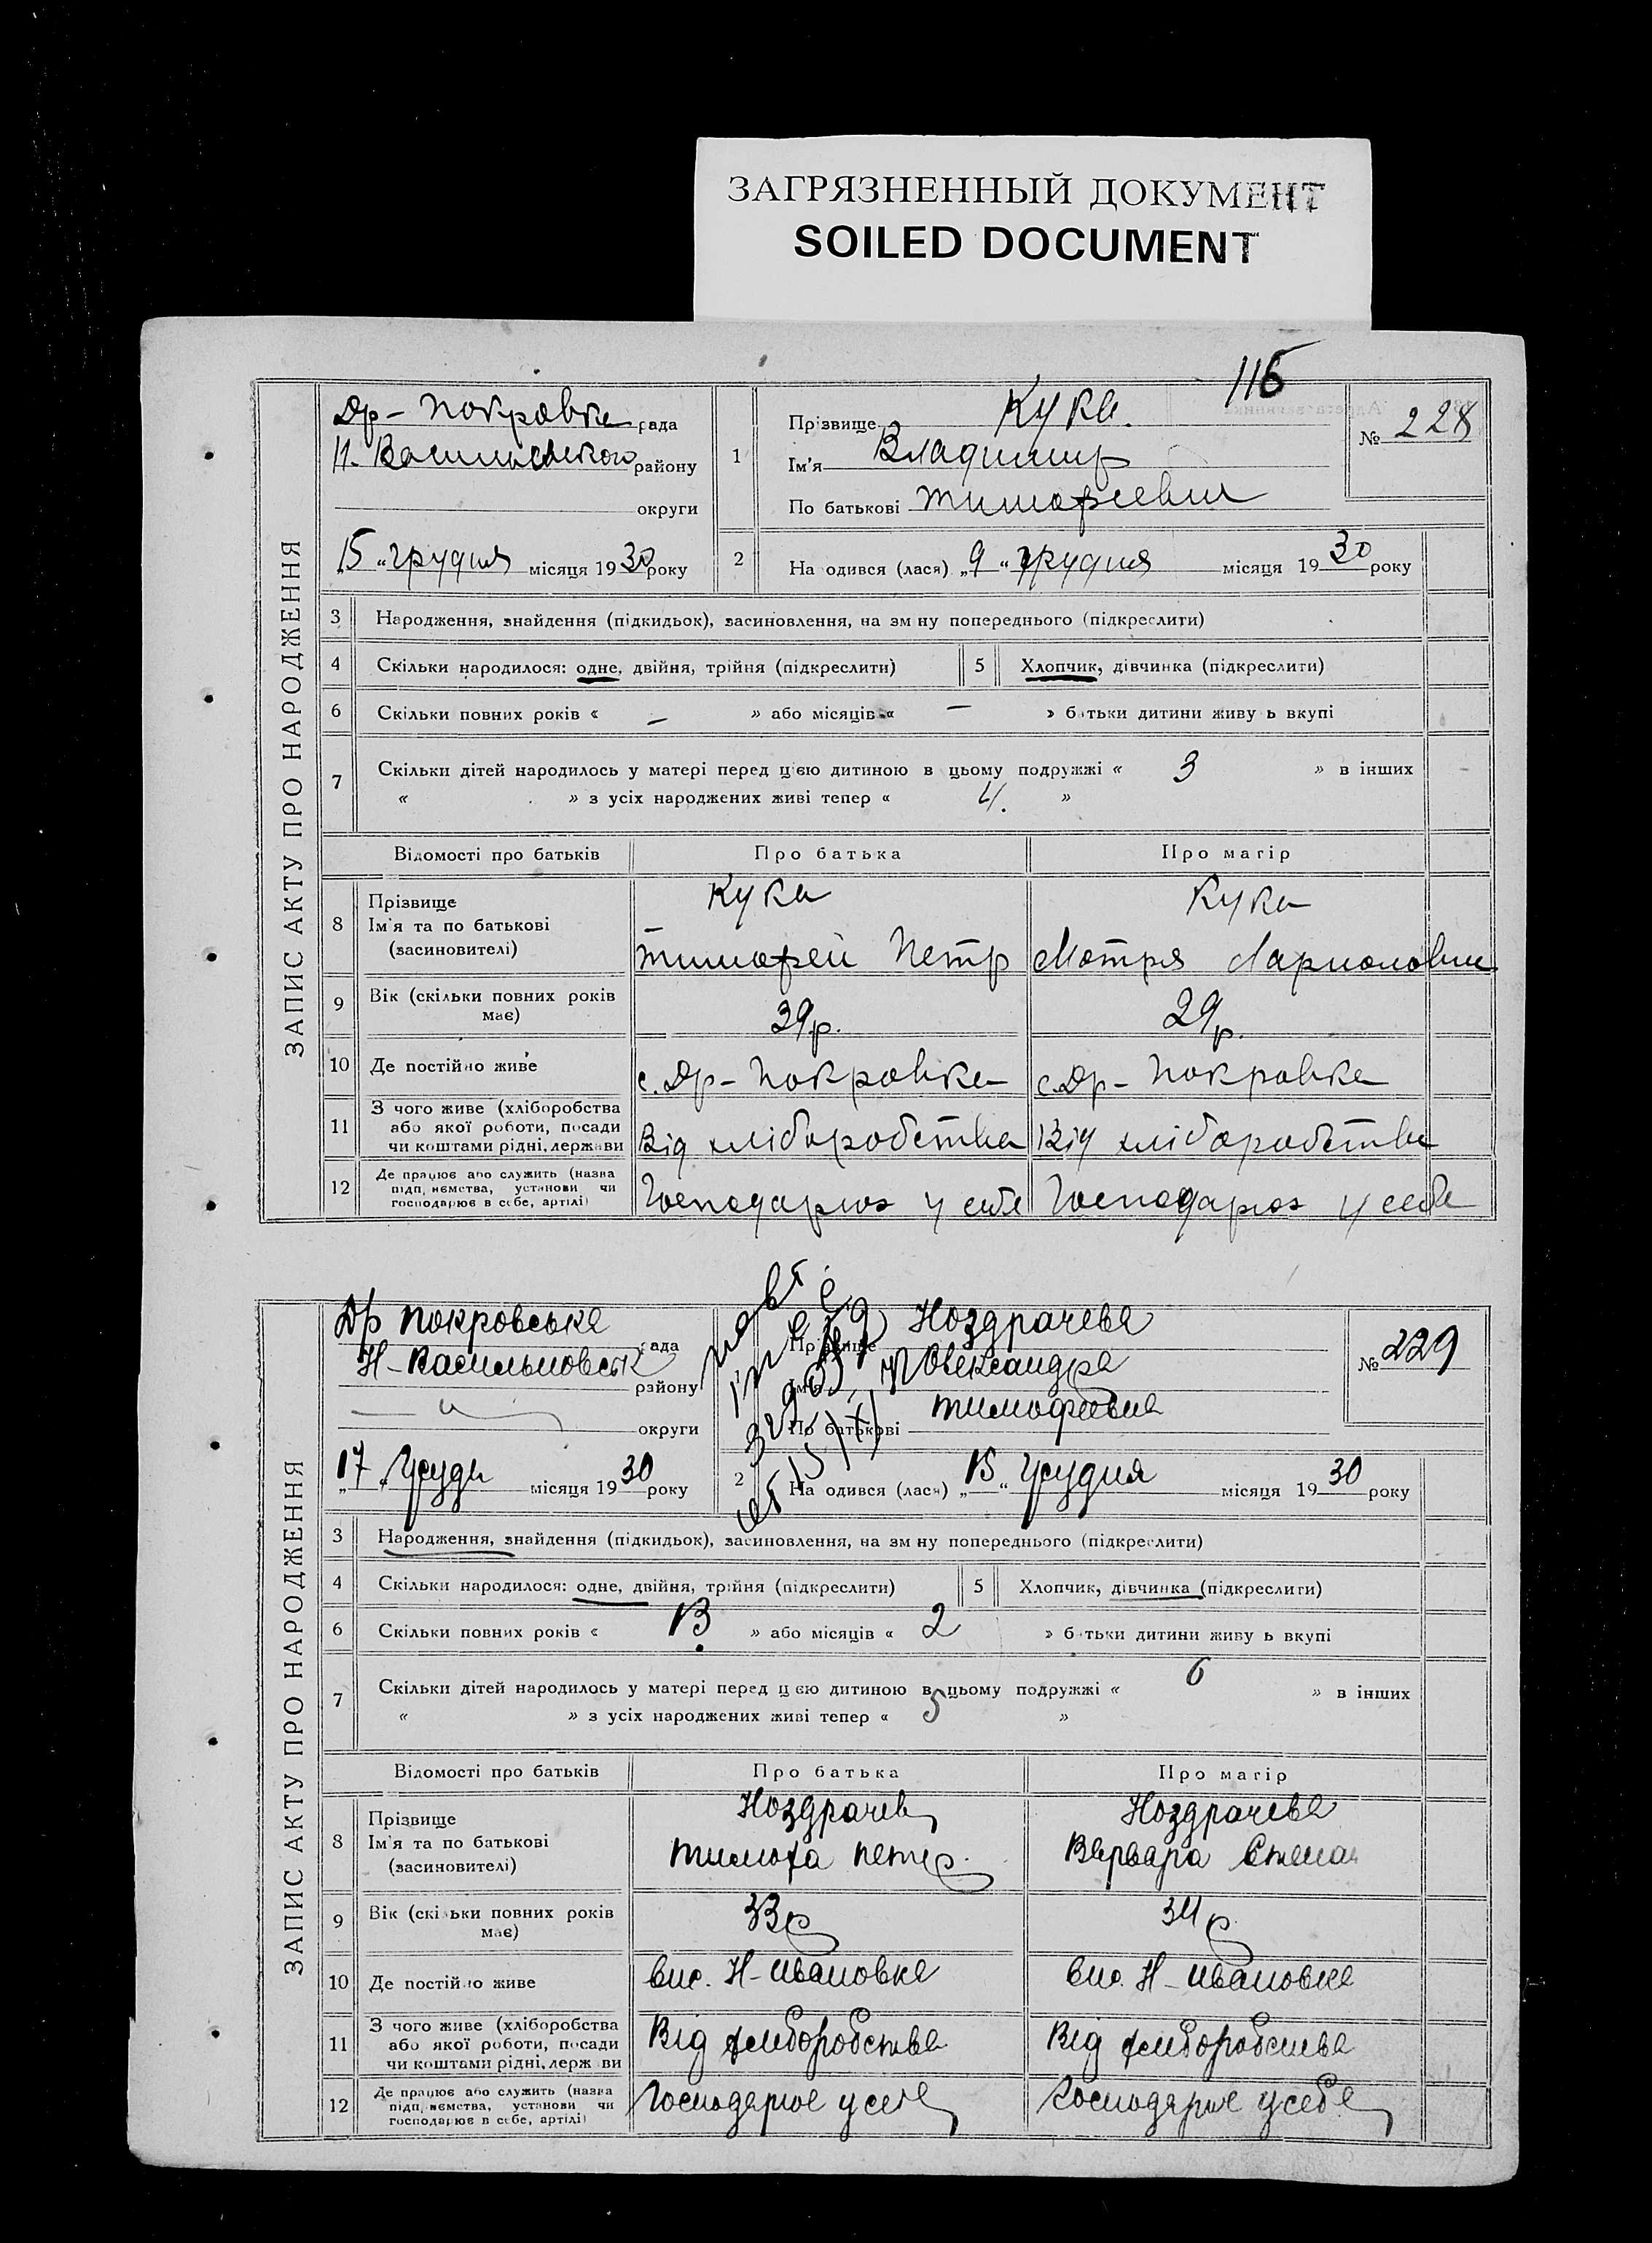 ЗАГРЯЗНЕННЫЙ ДОКУМЕНТ
SOILED DOCUMENT
116
ЗАПИС АКТУ ПРО НАРОДЖЕННЯ
Др - Покровка рада
Н. Васильевского району
округи
15 " грудня місяця 1930 року
1
Прізвище Кука.
Ім'я Владимир
По батькові Тимофеевич
№ 228
2 На одився (лася) „9 " грудня місяця 1930 року
3 Народження, знайдення (підкидьок), засиновлення, на зм ну попереднього (підкреслити)
4 Скільки народилося: одне, двійня, трійня (підкреслити) 5 Хлопчик, дівчинка (підкреслити)
6 Скільки повних років « — » або місяців « — » батьки дитини живу ь вкупі
7 Скільки дітей народилось у матері перед цією дитиною в цьому подружжі « 3 » в інших
« » з усіх народжених живі тепер « 4. »
Відомості про батьків Про батька Про матір
8 Прізвище
Ім'я та по батькові
(засиновителі)
Кука
Тимофей Петр
Кука
Мотря Ларионовн
9 Вік (скільки повних років має) 39р. 29р.
10 Де постійно живе с. Др - Покровка с. Др - Покровка
11 З чого живе (хліборобства
або якої роботи, посади
чи коштами рідні, держави
Від хліборобства Від хліборобства
12 Де працює або служить (назва
підп, немства, установи чи
господарює в себе, артілі)
Господарюэ у себе Господарюэ у себе
ЗАПИС АКТУ ПРО НАРОДЖЕННЯ
Др Покровська рада
Н - Васильновськ району
округи
„17 " Груди місяця 1930 року
Прізвище Ноздрачева
Ім'я Олександра
По батькові Тимофевна
№ 229
2 На одився (лася) „15 " Грудня місяця 1930 року
3 Народження, знайдення (підкидьок), засиновлення, на зм ну попереднього (підкреслити)
4 Скільки народилося: одне, двійня, трійня (підкреслити) 5 Хлопчик, дівчинка (підкреслити)
6 Скільки повних років « 13 » або місяців « 2 » батьки дитини живу ь вкупі
7 Скільки дітей народилось у матері перед цією дитиною в цьому подружжі « 6 » в інших
« » з усіх народжених живі тепер « 5 »
Відомості про батьків Про батька Про матір
8 Прізвище
Ім'я та по батькові
(засиновителі)
Ноздрачев
Тимофа Петр.
Ноздрачева
Варвара Степан
9 Вік (скільки повних років має) 33р 34р
10 Де постійно живе вис. Н - Ивановка вис. Н - Ивановка
11 З чого живе (хліборобства
або якої роботи, посади
чи коштами рідні, держ ви
Від хлиборобства Від хлиборобства
12 Де працює або служить (назва
підп, немства, установи чи
господарює в себе, артілі)
Господарює у себе Господарює у себе